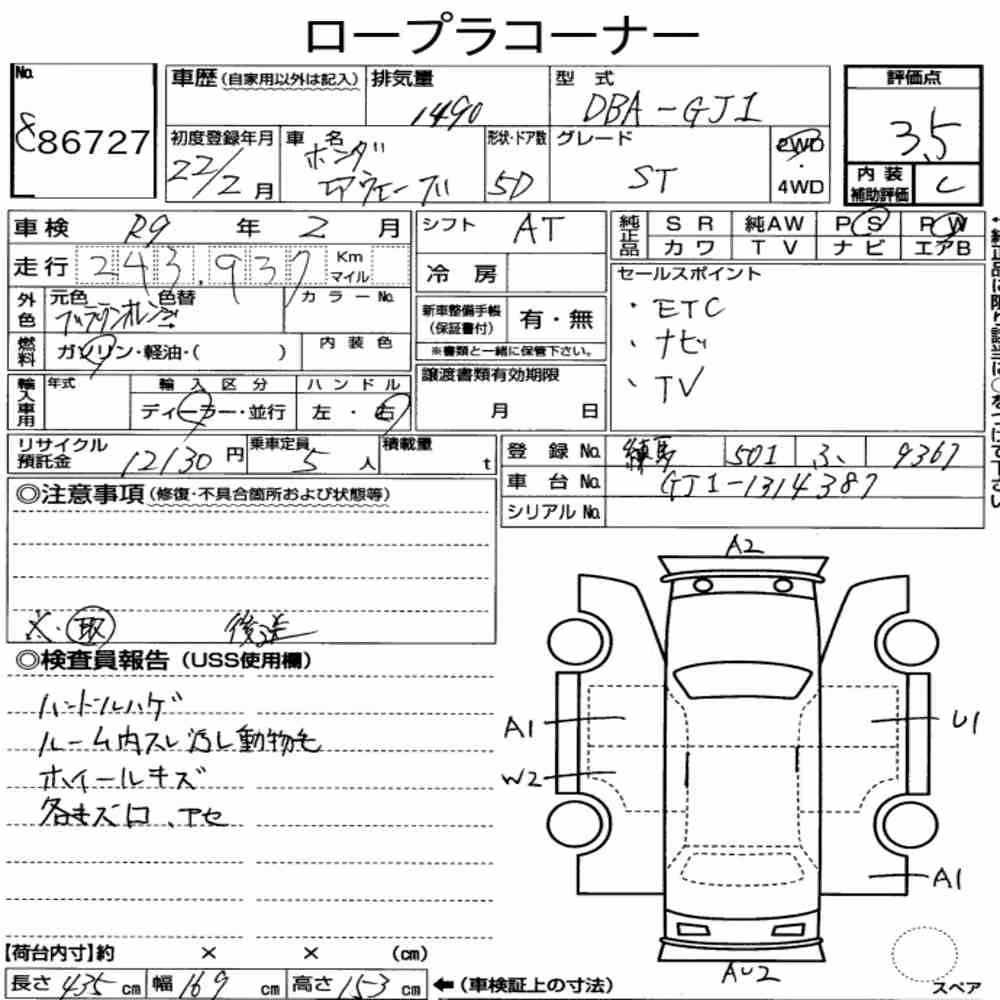 ロープラコーナー
No. 886727
車歴(自家用以外は記入) 排気量 1490 型 式 DBA-GJ1
評価点 3.5
初度登録年月 22/2月 車 名 ホンダ エアウェーブ 形状・ドア数 5D グレード ST 2WD・4WD
内装補助評価 C
車検 R9年 2月
走行 243,937 Km マイル
外色 元色 色替 カラーNo.
燃料 ガソリン・軽油・( ) 内装色
輸入車用 年式 輸入区分 ハンドル
ディーラー・並行 左・右
シフト AT
冷房
新車整備手帳(保証書付) 有・無
※書類と一緒に保管下さい。
譲渡書類有効期限
月 日
純正品 SR 純AW PS PW
カワ TV ナビ エアB
セールスポイント
・ETC
・ナビ
・TV
リサイクル預託金 12130円 乗車定員 5人 積載量 t
登録No. 練馬 501 ふ 9367
車台No. GJ1-1314387
シリアルNo.
◎注意事項(修復・不具合箇所および状態等)
※・取 後送
◎検査員報告(USS使用欄)
ハンドルハゲ
ルーム内スレ汚レ動物毛
ホイールキズ
各キズ凹、アセ
A2
A1
U1
W2
A1
AU2
スペア
【荷台内寸】約 × × (cm)
長さ 435 cm 幅 169 cm 高さ 153 cm ←(車検証上の寸法)